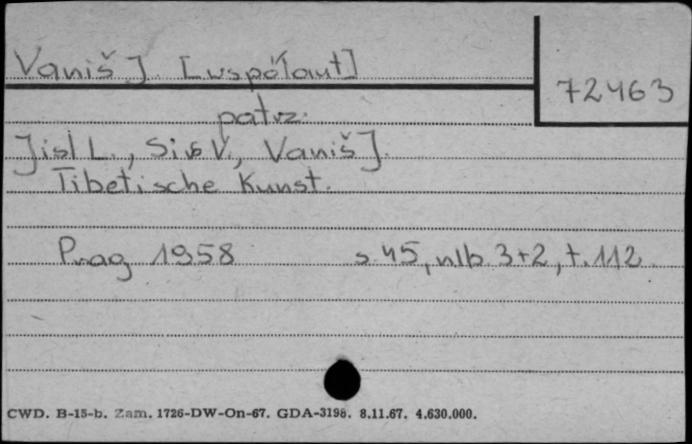 Vaniš J. [współaut]
72463
patrz:
Jisl L., Sis V., Vaniš J.
Tibetische Kunst.
Prag 1958 s. 45, nlb 3+2, t. 112
CWD. B-15-b. Zam. 1726-DW-On-67. GDA-3198. 8.11.67. 4.630.000.